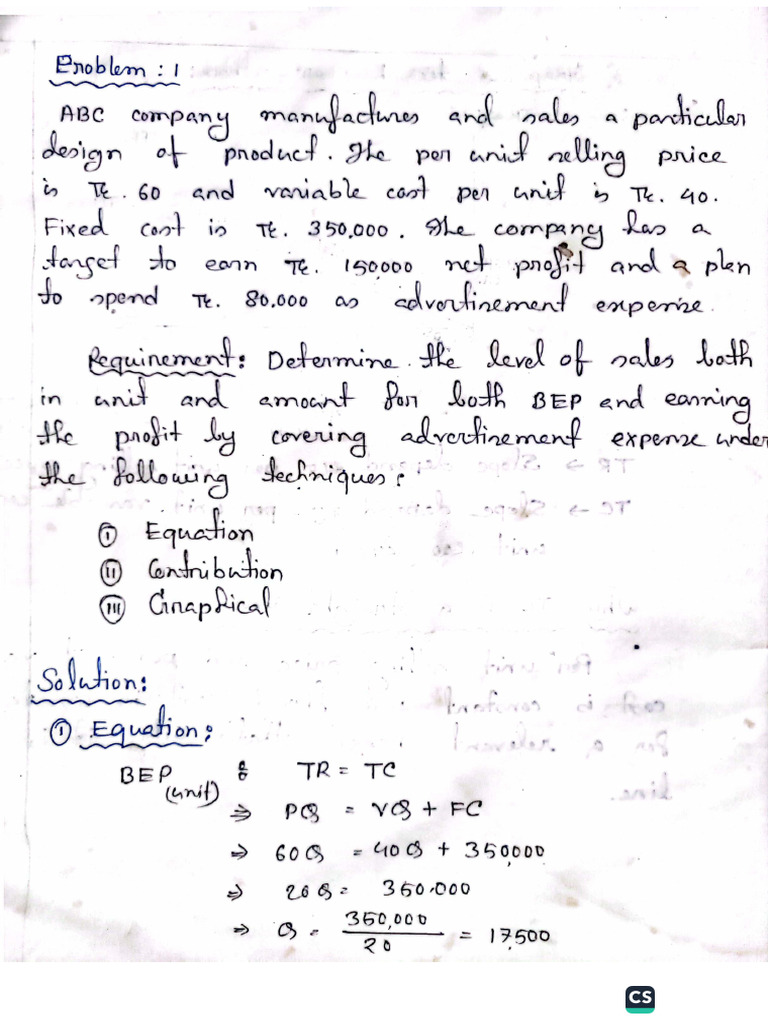 Problem : 1
ABC company manufactures and sales a particular
design of product. The per unit selling price
is Tk. 60 and variable cost per unit is Tk. 40.
Fixed cost is Tk. 350,000. The company has a
target to earn Tk. 150000 net profit and a plan
to spend Tk. 80.000 as advertisement expense.
Requirement: Determine the level of sales both
in unit and amount for both BEP and earning
the profit by covering advertisement expense under
the following techniques:
(I) Equation
(II) Contribution
(III) Graphical
Solution:
(I) Equation:
BEP (unit) : TR = TC
⇒ PQ = VQ + FC
⇒ 60Q = 40Q + 350,000
⇒ 20Q = 350.000
⇒ Q = 350,000 / 20 = 17,500
CS